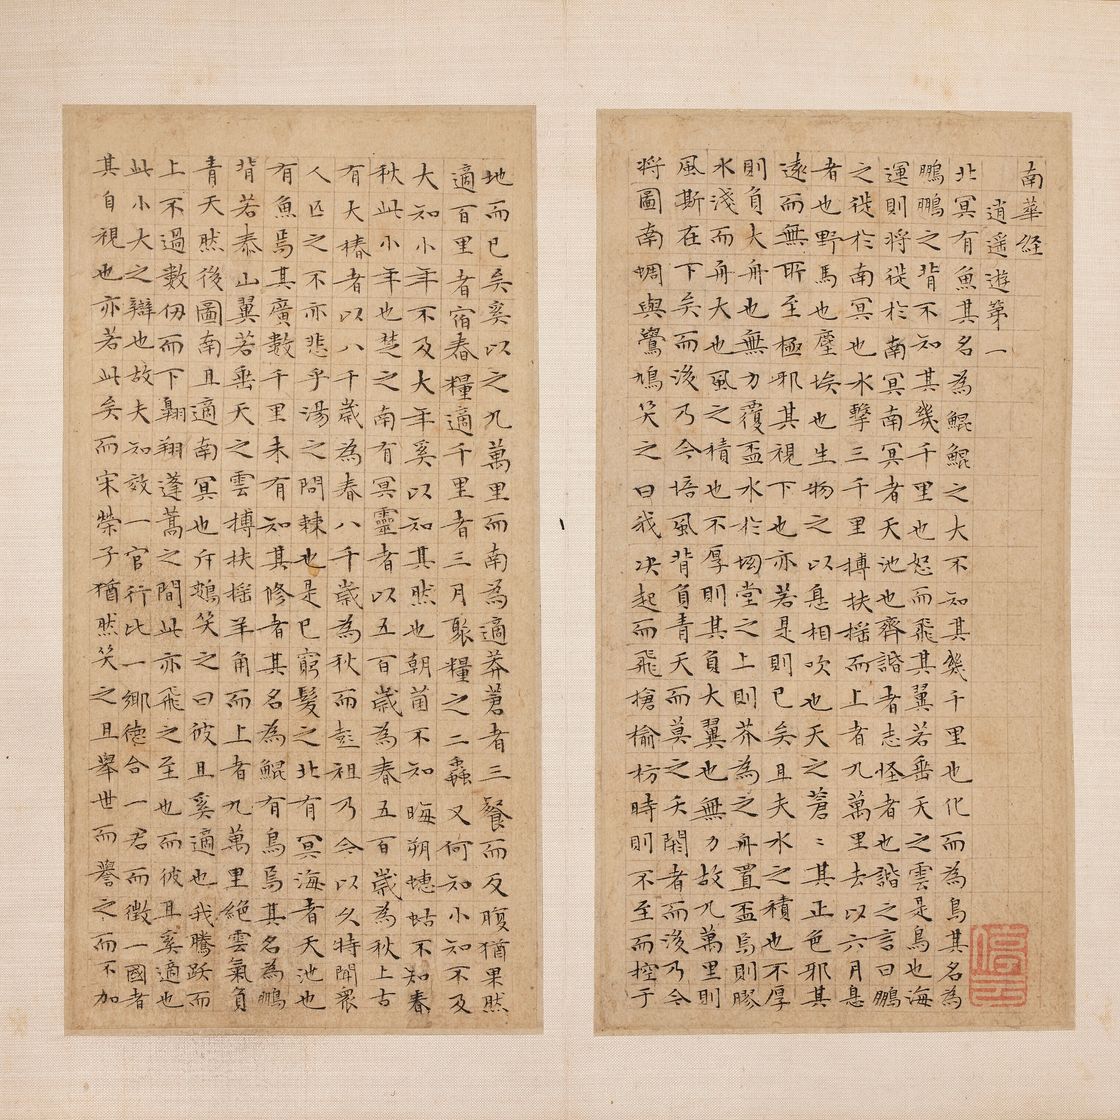 南華經
逍遙遊第一
北冥有魚其名為鯤鯤之大不知其幾千里也化而為鳥其名為
鵬鵬之背不知其幾千里也怒而飛其翼若垂天之雲是鳥也海
運則將徙於南冥南冥者天池也齊諧者志怪者也諧之言曰鵬
之徙於南冥也水擊三千里摶扶搖而上者九萬里去以六月息
者也野馬也塵埃也生物之以息相吹也天之蒼〻其正色邪其
遠而無所至極邪其視下也亦若是則已矣且夫水之積也不厚
則負大舟也無力覆盃水於坳堂之上則芥為之舟置盃焉則膠
水淺而舟大也風之積也不厚則其負大翼也無力故九萬里則
風斯在下矣而後乃今培風背負青天而莫之夭閼者而後乃今
將圖南蜩與鷽鳩笑之曰我決起而飛搶榆枋時則不至而控于
地而已矣奚以之九萬里而南為適莽蒼者三餐而反腹猶果然
適百里者宿舂糧適千里者三月聚糧之二蟲又何知小知不及
大知小年不及大年奚以知其然也朝菌不知晦朔蟪蛄不知春
秋此小年也楚之南有冥靈者以五百歲為春五百歲為秋上古
有大椿者以八千歲為春八千歲為秋而彭祖乃今以久特聞衆
人匹之不亦悲乎湯之問棘也是已窮髮之北有冥海者天池也
有魚焉其廣數千里未有知其修者其名為鯤有鳥焉其名為鵬
背若泰山翼若垂天之雲摶扶搖羊角而上者九萬里絕雲氣負
青天然後圖南且適南冥也斥鴳笑之曰彼且奚適也我騰躍而
上不過數仞而下翱翔蓬蒿之間此亦飛之至也而彼且奚適也
此小大之辯也故夫知效一官行比一鄉德合一君而徵一國者
其自視也亦若此矣而宋榮子猶然笑之且舉世而譽之而不加
停云